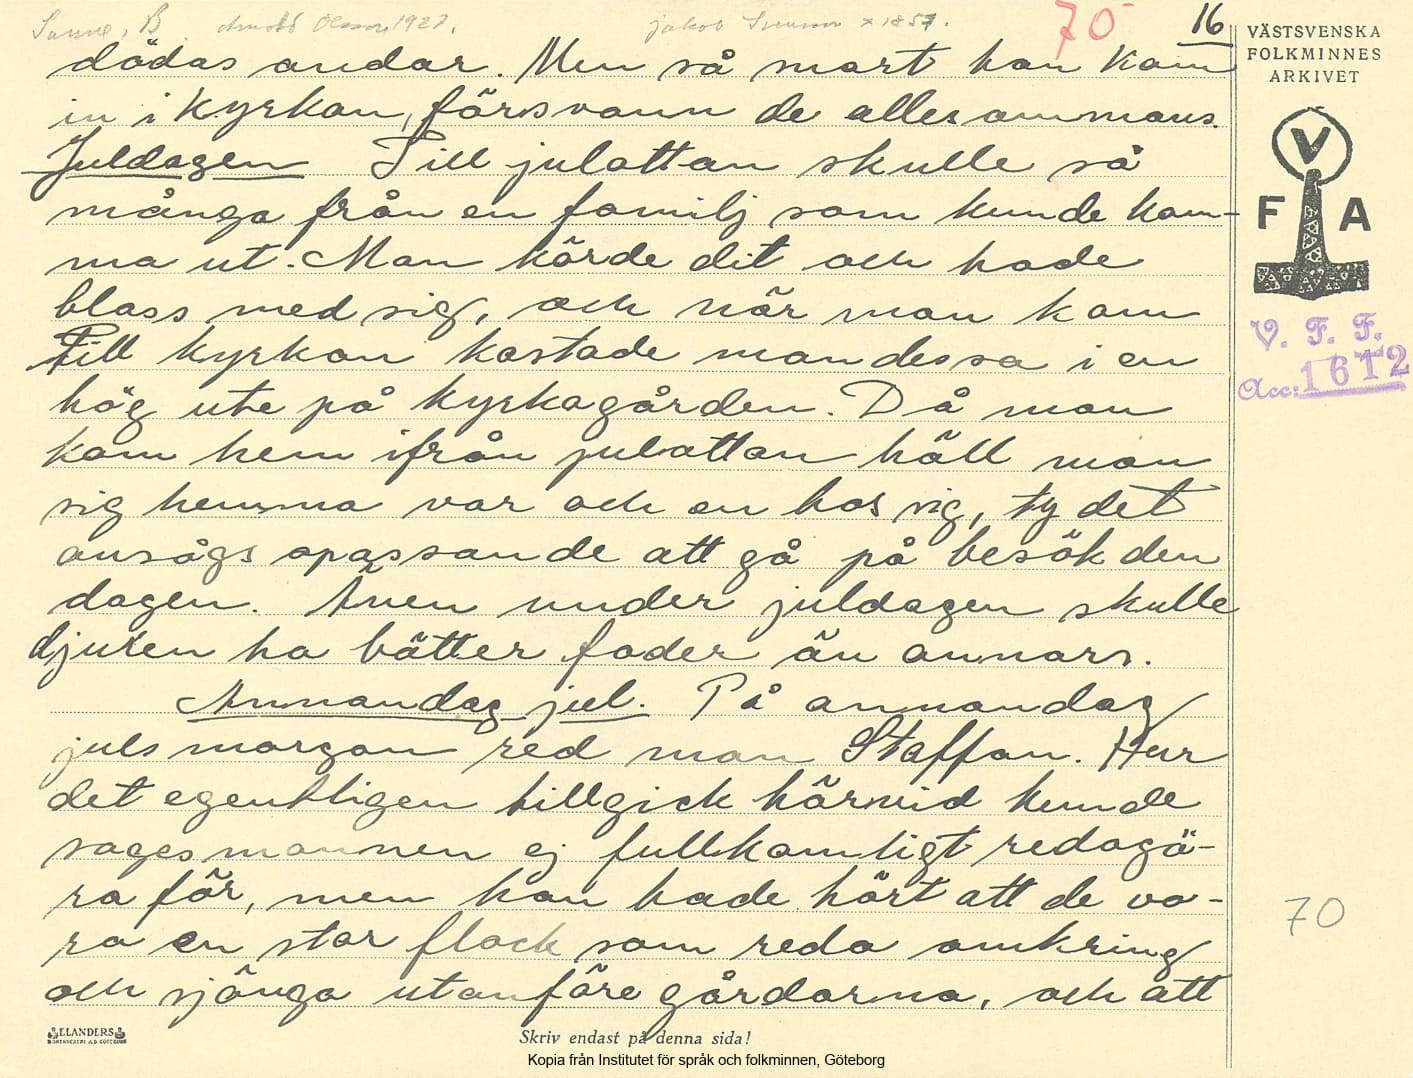 Sanne, B Arnold Olsson, 1927. Jakob Svensson x 1857. 70 16
dödas andar. Men så snart han kom
in i kyrkan, försvann de allesammans.
Juldagen Till julottan skulle så
många från en familj som kunde kom-
ma ut. Man körde dit och hade
bloss med sig, och när man kom
till kyrkan kastade man dessa i en
hög ute på kyrkagården. Då man
kom hem ifrån julottan höll man
sig hemma var och en hos sig, ty det
ansågs opassande att gå på besök den
dagen. Även under juldagen skulle
djuren ha bätter foder än annars.
Annandag jul. På annandag
juls morgon red man Staffan. Hur
det egentligen tillgick härvid kunde
sagesmannen ej fullkomligt redogö-
ra för, men han hade hört att de vo-
ro en stor flock som redo omkring
och sjöngo utanföre gårdarna, och att
VÄSTSVENSKA
FOLKMINNES
ARKIVET
V
F A
V. F. F.
Acc: 1612
70
ELANDERS
Skriv endast på denna sida!
Kopia från Institutet för språk och folkminnen, Göteborg